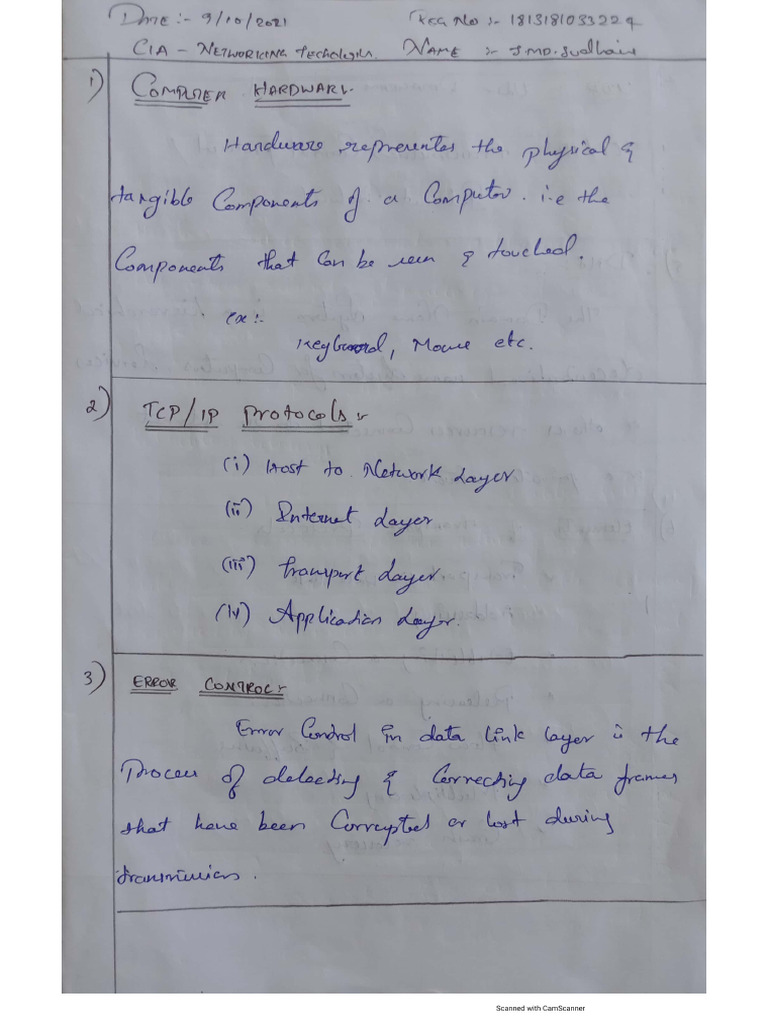 DATE :- 9/10/2021 REG NO :- 1813181033229
CIA - NETWORKING TECHOLOGIES. NAME :- J.MD.Sudhais
1) COMPUTER HARDWARE.
Hardware represents the physical &
tangible Components of a Computer. i.e the
Components that Can be seen & touched.
ex :-
Keyboard, Mouse etc.
2) TCP/IP Protocols :-
(i) Host to Network Layer
(ii) Internet Layer
(iii) Transport Layer
(iv) Application Layer.
3) ERROR CONTROL :-
Error Control in data link layer is the
Process of detecting & Correcting data frames
that have been Corrupted or lost during
transmission.
Scanned with CamScanner